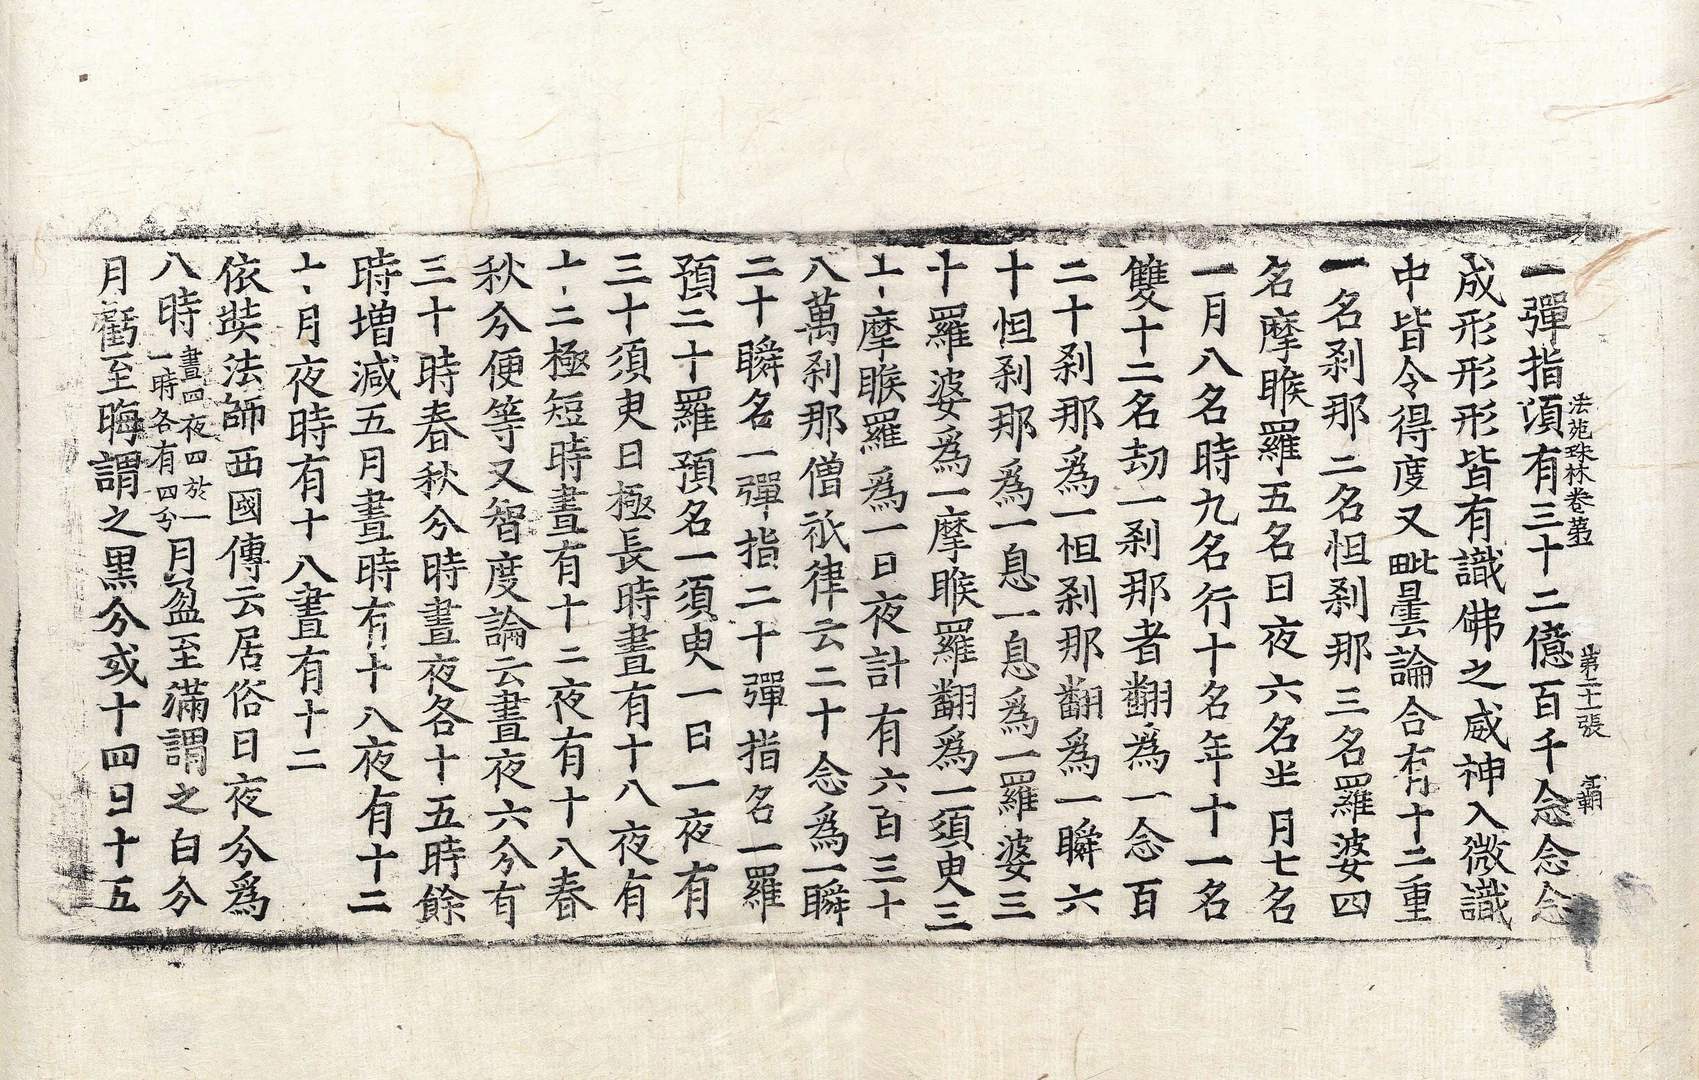 法苑珠林卷苐　第二十一張　覇
一彈指湏有三十二億百千念念念
成形形形皆有識佛之威神入微識
中皆令得度又毗曇論合有十二重
一名剎那二名怛剎那三名羅婆四
名摩睺羅五名日夜六名半月七名
一月八名時九名行十名年十一名
雙十二名劫一剎那者翻爲一念百
二十剎那爲一怛剎那翻爲一瞬六
十怛剎那爲一息一息爲一羅婆三
十羅婆爲一摩睺羅翻爲一須臾三
十摩睺羅爲一日夜計有六百三十
八萬剎那僧祇律云二十念爲一瞬
二十瞬名一彈指二十彈指名一羅
預二十羅預名一須臾一日一夜有
三十須臾日極長時晝有十八夜有
十二極短時晝有十二夜有十八春
秋分便等又智度論云晝夜六分有
三十時春秋分時晝夜各十五時餘
時增減五月晝時有十八夜有十二
十一月夜時有十八晝有十二
依奘法師西國傳云居俗日夜分爲
八時晝四夜四於一一時各有四分月盈至滿謂之白分
月虧至晦謂之黑分或十四日十五